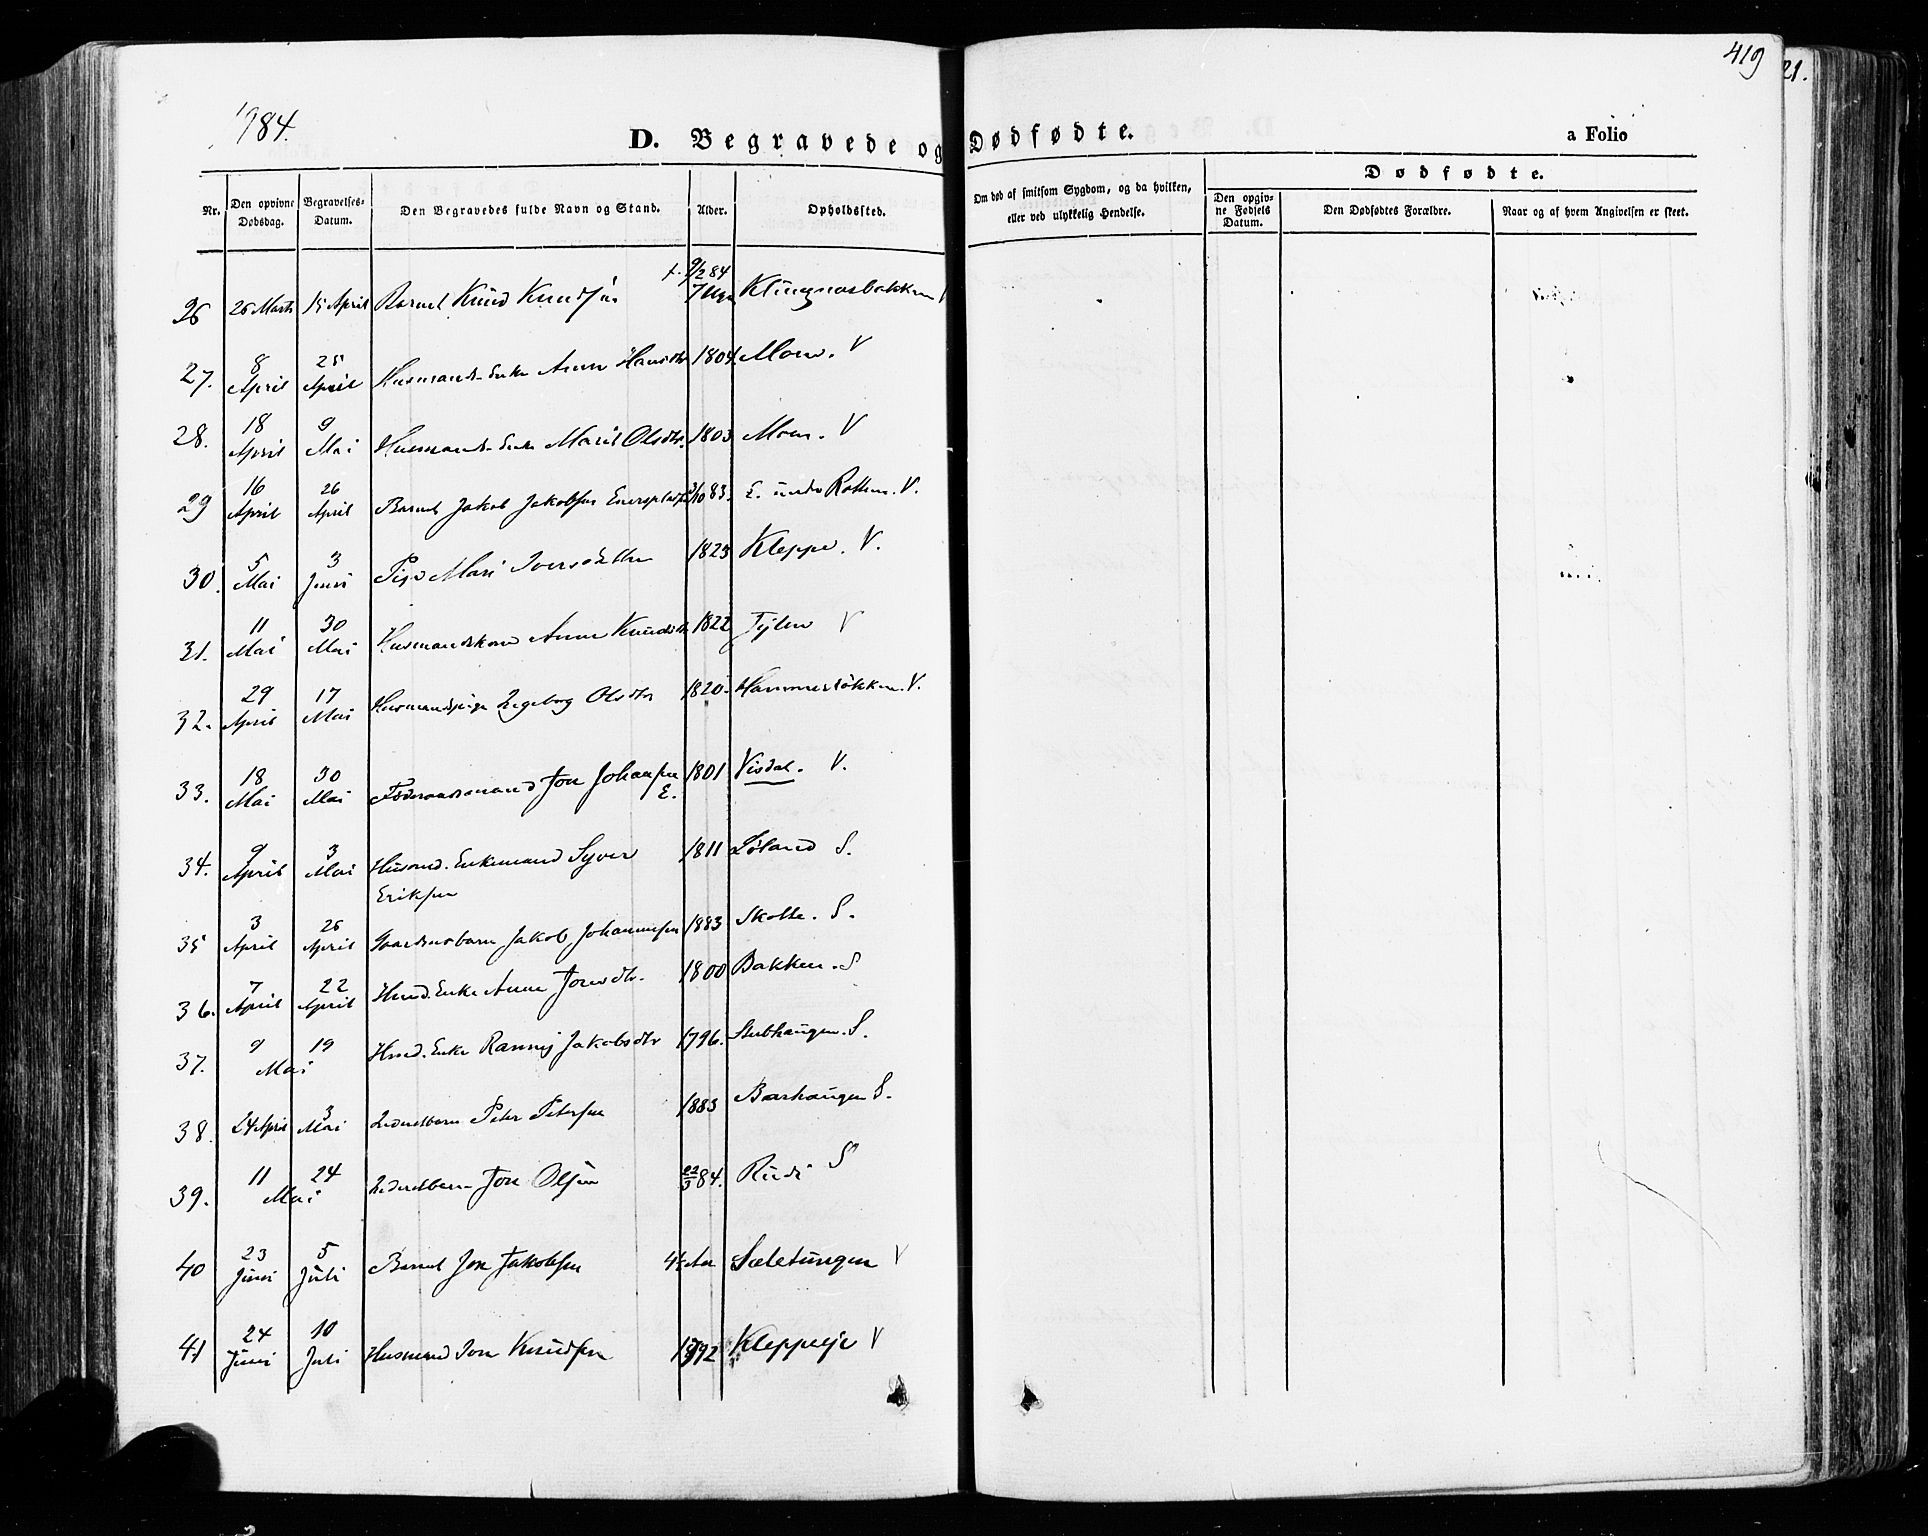 419
21.
1884.
D. Begravede og Dødfødte. a Folio
Nr. Den opgivne Dødsdag. Begravelses-Datum. Den Begravedes fulde Navn og Stand. Alder. Opholdssted. Om død af smitsom Sygdom, og da hvilken, eller ved ulykkelig Hendelse. Dødfødte.
Den opgivne Fødsels Datum. Den Dødfødtes Forældre. Naar og af hvem Angivelsen er skeet.
26 26 Marts 15 April Barnet Knud Knudsen 9/2 84
27. 8 April 25 April Husmands-Enke Anne Hansdtr 1804. Moen. V
28. 18 April 9 Mai Husmands-Enke Marit Olsdtr. 1803 Moen. V
29 16 April 26 April Barnet Jakob Jakobsen /10 83. E. under V.
30. 5 Mai 3 Juni Pige Mari Iversdatter 1823 Kleppe. V.
31. 11 Mai 30 Mai Husmandskone Anne Knudsdtr 1822 V
32. 29 April 17 Mai Ingeborg Olsdtr 1820. V.
33. 18 Mai 30 Mai Føderaadsmand Jon Johansen E. 1801 Visdal. V.
34. 9 April 3 Mai Husmd. Enkemand Syver
Eriksen 1811 Løland S.
35 3 April 26 April Gaardmandsbarn Jakob Johannesen 1883 Skotte. S.
36. 7 April 22 April Husmd. Enke Anne 1800 Bakken. S
37. 9 19 Mai Husmd. Enke Rannei Jakobsdtr 1796. Stubhaugen. S.
38. 24 April 3 Mai Inderstbarn Peter Petersen 1883 S.
39. 11 24 Mai Inderstbarn Jon Olsen 22/3 84. S
40 23 Juni 5 Juli Barnet Jon Jakobsen Sæletungen V
41 24 Juni 10 Juli Husmand Jon Knudsen 1792 Kleppeeje V